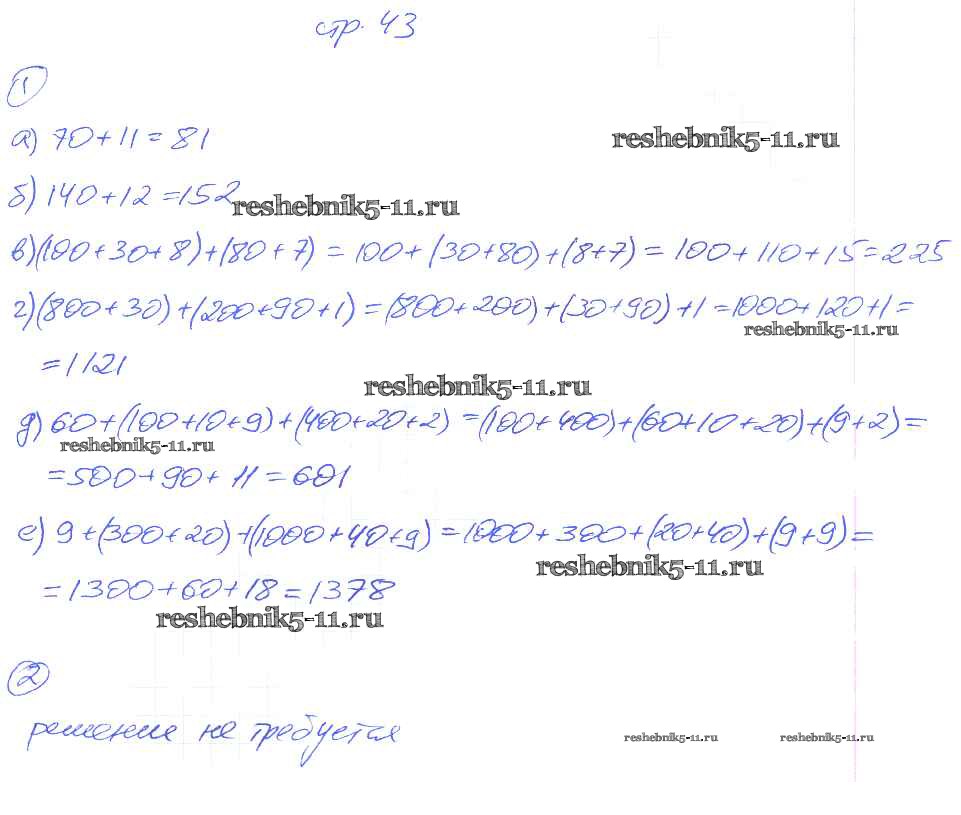 стр. 43
1
а) 70 + 11 = 81
reshebnik5-11.ru
б) 140 + 12 = 152
reshebnik5-11.ru
в) (100 + 30 + 8) + (80 + 7) = 100 + (30 + 80) + (8 + 7) = 100 + 110 + 15 = 225
г) (800 + 30) + (200 + 90 + 1) = (800 + 200) + (30 + 90) + 1 = 1000 + 120 + 1 =
reshebnik5-11.ru
= 1121
reshebnik5-11.ru
д) 60 + (100 + 10 + 9) + (400 + 20 + 2) = (100 + 400) + (60 + 10 + 20) + (9 + 2) =
reshebnik5-11.ru
= 500 + 90 + 11 = 601
е) 9 + (300 + 20) + (1000 + 40 + 9) = 1000 + 300 + (20 + 40) + (9 + 9) =
reshebnik5-11.ru
= 1300 + 60 + 18 = 1378
reshebnik5-11.ru
2
решение не требуется
reshebnik5-11.ru reshebnik5-11.ru